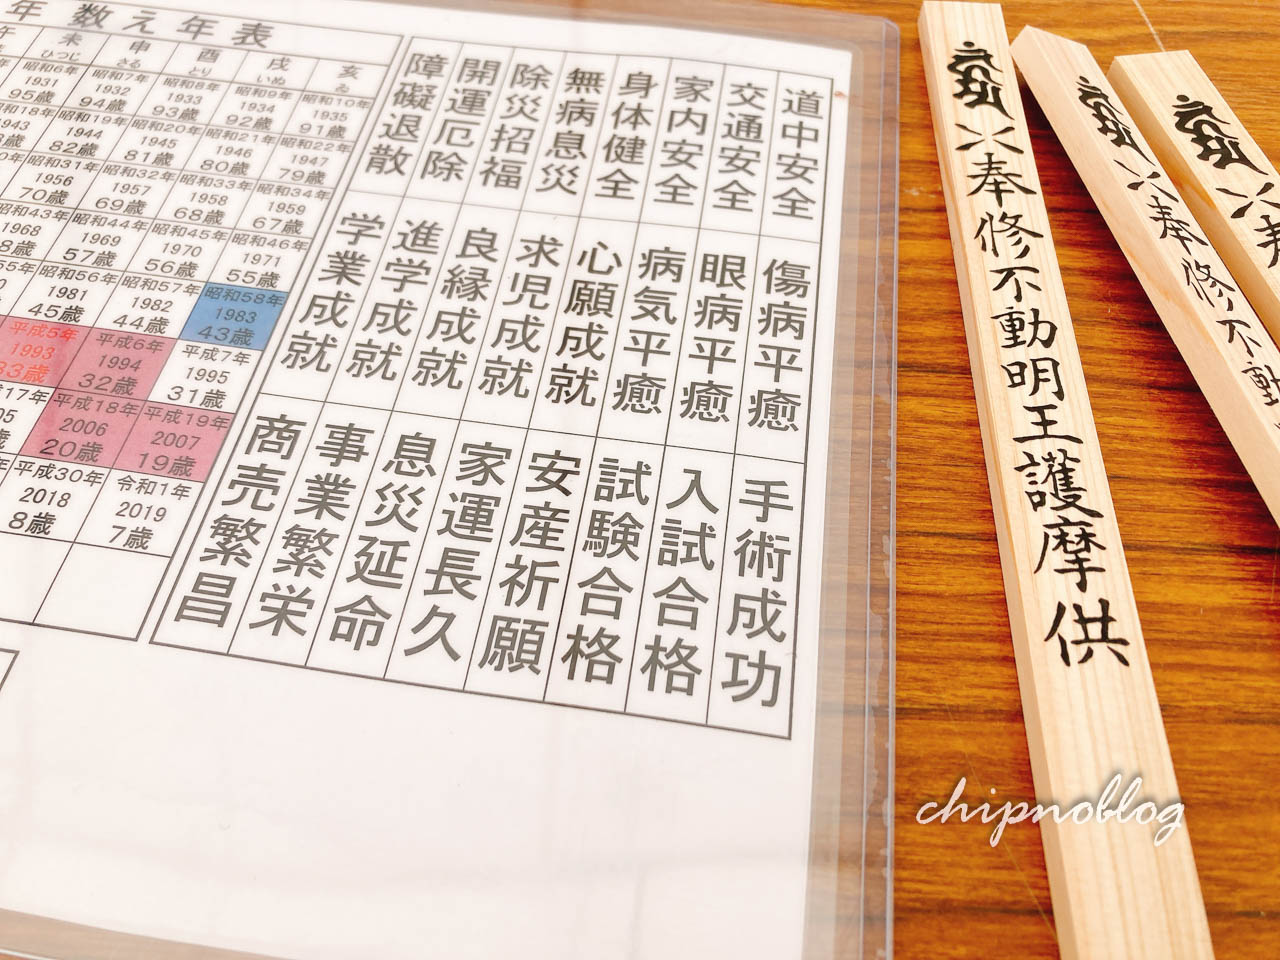 年 数え年表
未 申 酉 戌 亥
ひつじ さる とり いぬ ゐ
昭和6年 昭和7年 昭和8年 昭和9年 昭和10年
1931 1932 1933 1934 1935
95歳 94歳 93歳 92歳 91歳
昭和19年 昭和20年 昭和21年 昭和22年
1943 1944 1945 1946 1947
82歳 81歳 80歳 79歳
昭和31年 昭和32年 昭和33年 昭和34年
1956 1957 1958 1959
70歳 69歳 68歳 67歳
昭和43年 昭和44年 昭和45年 昭和46年
1968 1969 1970 1971
57歳 56歳 55歳
昭和56年 昭和57年 昭和58年
1981 1982 1983
45歳 44歳 43歳
平成5年 平成6年 平成7年
1993 1994 1995
33歳 32歳 31歳
平成18年 平成19年
2006 2007
20歳 19歳
平成30年 令和1年
2018 2019
8歳 7歳
道中安全
交通安全
家内安全
身体健全
無病息災
除災招福
開運厄除
障礙退散
傷病平癒
眼病平癒
病気平癒
心願成就
求児成就
良縁成就
進学成就
学業成就
手術成功
入試合格
試験合格
安産祈願
家運長久
息災延命
事業繁栄
商売繁昌
奉修不動明王護摩供
奉修不動
chipnoblog